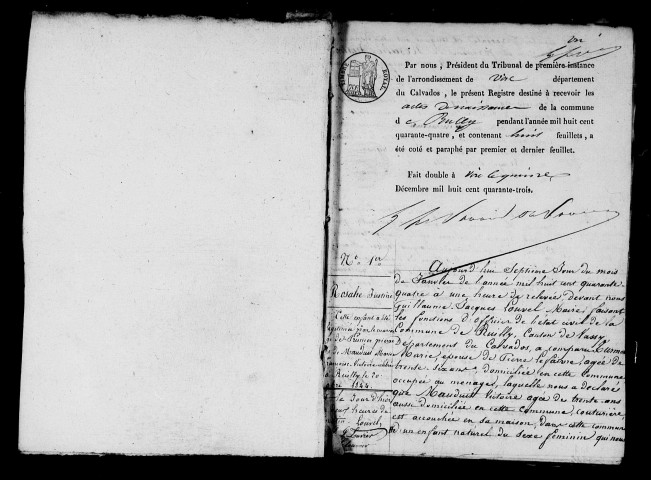 Par nous, Président du Tribunal de première instance
de l'arrondissement de Vire département
du Calvados, le présent Registre destiné à recevoir les
actes de naissance de la commune
de Rully pendant l'année mil huit cent
quarante-quatre, et contenant huit feuillets, a
été coté et paraphé par premier et dernier feuillet.
Fait double à Vire le quinze
Décembre mil huit cent quarante-trois.
N° 1er
Rosalie Justine
Cette enfant a été
à Rully le 20
1844
Aujourd'hui Septième Jour du mois
de Janvier de l'année mil huit cent quarante
quatre à une heure de relevée devant nous
Guillaume Jacques Louvel Maire faisant
les fonctions d'officier de l'état civil de la
Commune de Rully, Canton de Vassy
Département du Calvados, a comparu
Marie épouse de Pierre Lefaivre, agée de
trente six ans, domiciliée en cette Commune
occupée au menage, laquelle nous a déclaré
que Mauduit Victoire agée de trente ans
aussi domiciliée en cette commune, couturière
est accouchée en sa maison, dans cette commune
d'un enfant naturel du sexe feminin qui nous